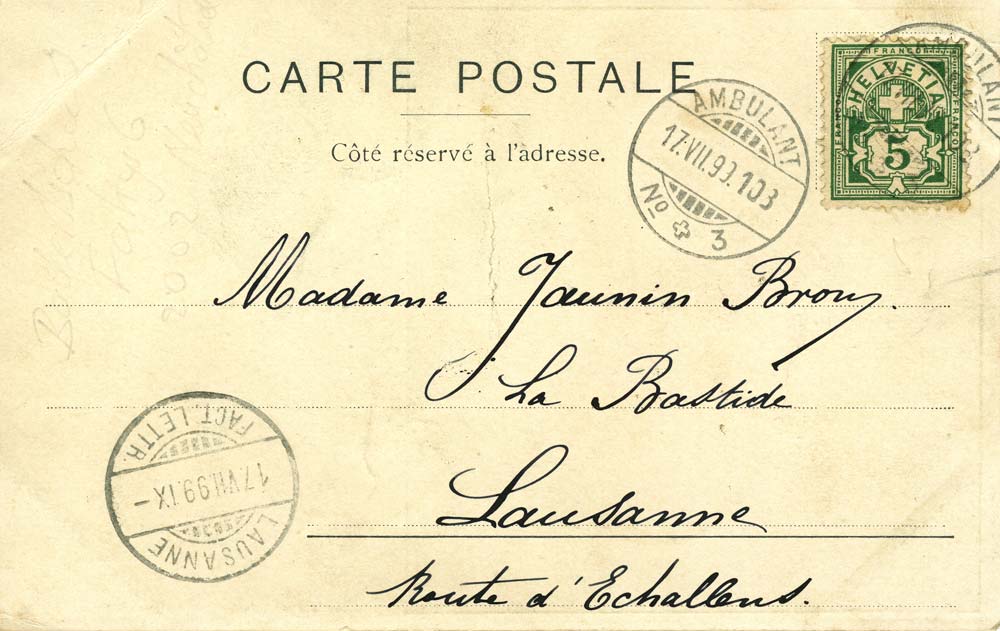 CARTE POSTALE
Côté réservé à l'adresse.
AMBULANT
17.VII.99.103
No 3
FRANCO
HELVETIA
FRANCO
FRANCO
5
AMBULANT
Madame Jaunin Brouy.
La Bastide
Lausanne
Route d'Echallens.
LAUSANNE
17.VII.99.IX-
FACT. LETTR.